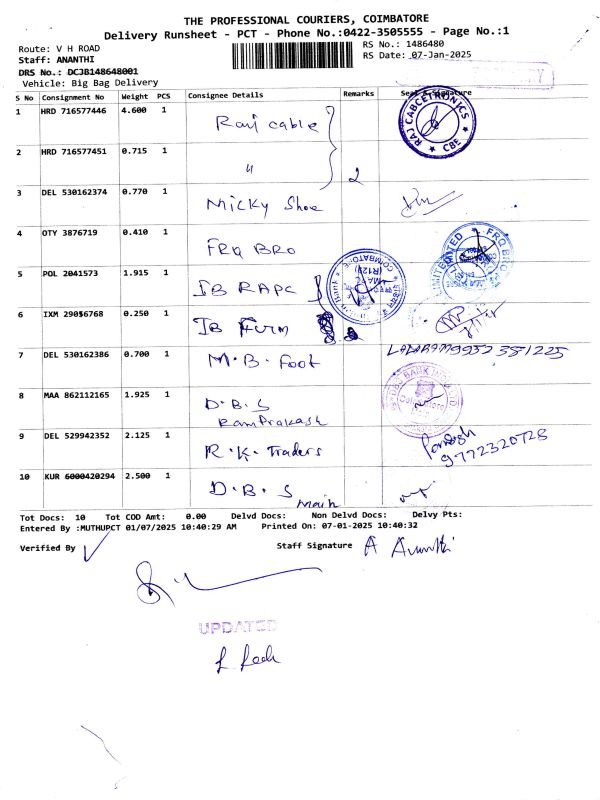 THE PROFESSIONAL COURIERS, COIMBATORE
Delivery Runsheet - PCT - Phone No.:0422-3505555 - Page No.:1
Route: V H ROAD
RS No.: 1486480
Staff: ANANTHI
RS Date: 07-Jan-2025
DRS No.: DCJB148648001
Vehicle: Big Bag Delivery
S No Consignment No Weight PCS Consignee Details Remarks Seal & Signature
1 HRD 716577446 4.600 1 Raj cable
RAJ CABCETRONICS
CBE
2 HRD 716577451 0.715 1 " 2
3 DEL 530162374 0.770 1 Micky Shoe
4 OTY 3876719 0.410 1 FRQ BRO
LIMITED FRQ BRO
5 POL 2041573 1.915 1 IB RAPC
COIMBATORE
6 IXM 29056768 0.250 1 IB Furm
7 DEL 530162386 0.700 1 M.B. Foot 9952 381225
8 MAA 862112165 1.925 1 D.B.S
Ram Prakash
DBS BANK INDIA LTD
Coimbatore
9 DEL 529942352 2.125 1 R.K. Traders
9772320728
10 KUR 6000420294 2.500 1 D.B.S Main
Tot Docs: 10 Tot COD Amt: 0.00 Delvd Docs: Non Delvd Docs: Delvy Pts:
Entered By :MUTHUPCT 01/07/2025 10:40:29 AM Printed On: 07-01-2025 10:40:32
Verified By
Staff Signature A Ananthi
UPDATED